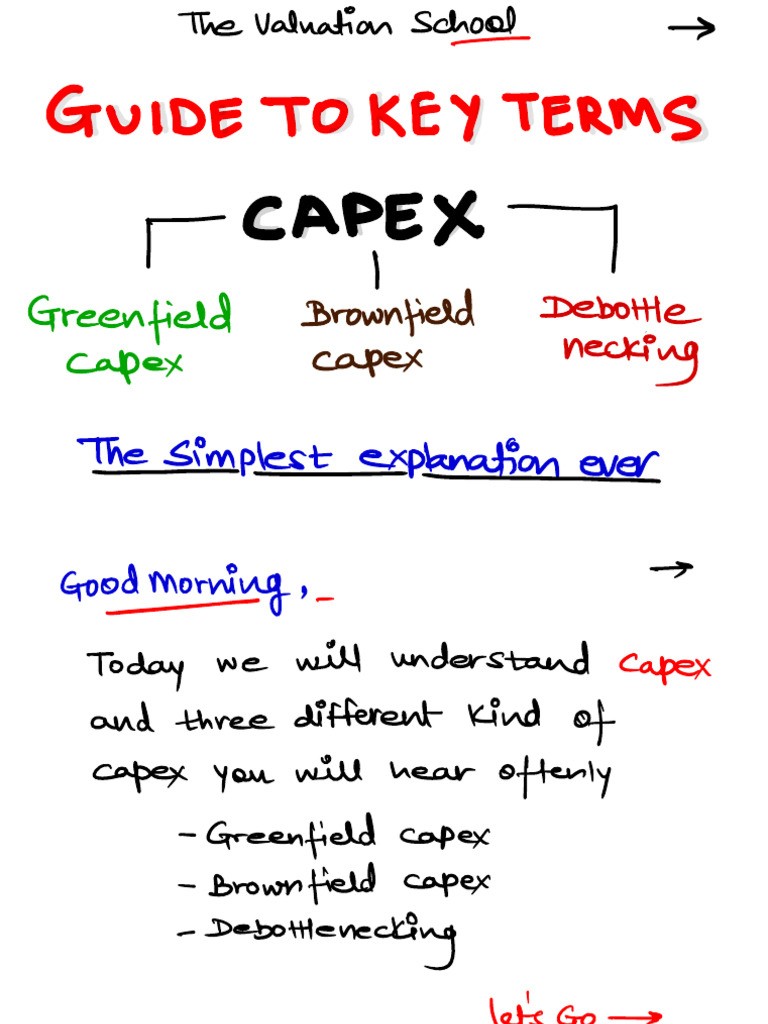 The Valuation School →
GUIDE TO KEY TERMS
CAPEX
Greenfield capex
Brownfield capex
Debottle necking
The simplest explanation ever
Good Morning, →
Today we will understand capex
and three different kind of
capex you will hear oftenly
- Greenfield capex
- Brownfield capex
- Debottlenecking
let's Go →